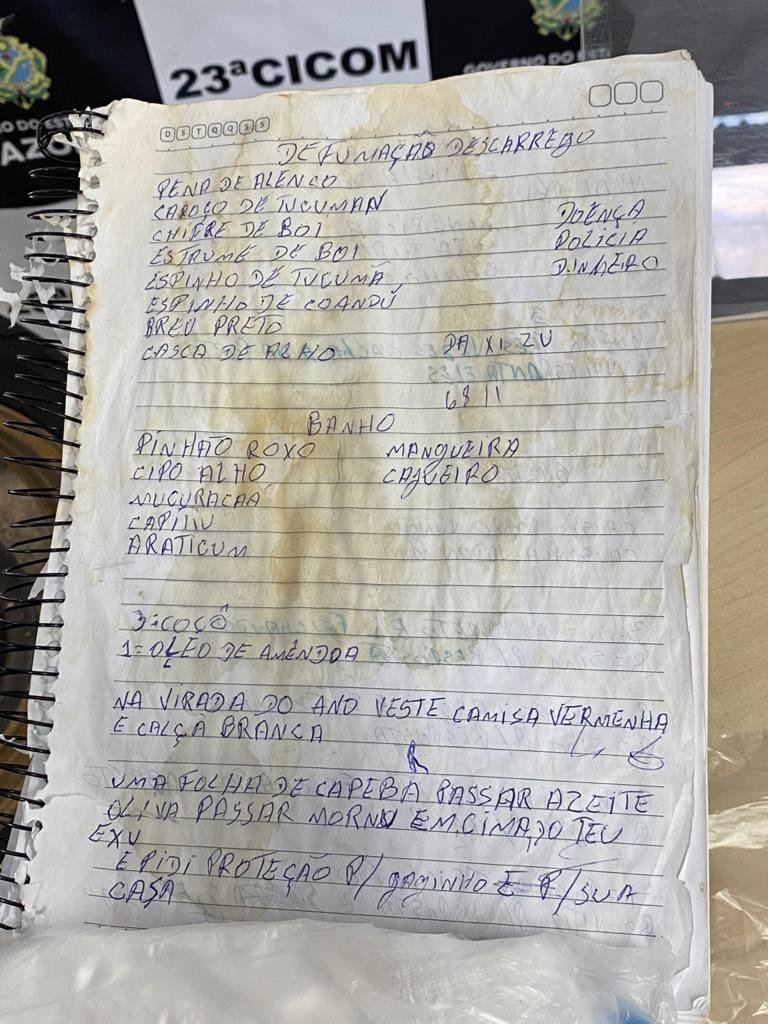 23ªCICOM
GOVERNO DO ESTA
O DO EST
AZO
D S T Q Q S S
DEFUMAÇÃO DESCARREGO
PENA DE ALENCO
CAROÇO DE TUCUMAN
CHIFRE DE BOI DOENÇA
ESTRUME DE BOI POLICIA
ESPINHO DE TUCUMÃ DINHEIRO
ESPINHO DE COANDÚ
BREU PRETO
CASCA DE ALHO
6811
BANHO
PINHÃO ROXO MANQUEIRA
CIPO ALHO CAJUEIRO
MUCURACAÁ
CAPITIU
ARATICUM
3=COCÔ
1=OLEO DE AMÊNDOA
NA VIRADA DO ANO VESTE CAMISA VERMENHA
E CALÇA BRANCA
UMA FOLHA DE CAPEBA PASSAR AZEITE
OLIVA PASSAR MORNO EM CIMA DO TEU
EXU
E PIDI PROTEÇÃO P/ gaginho E P/ SUA
CASA